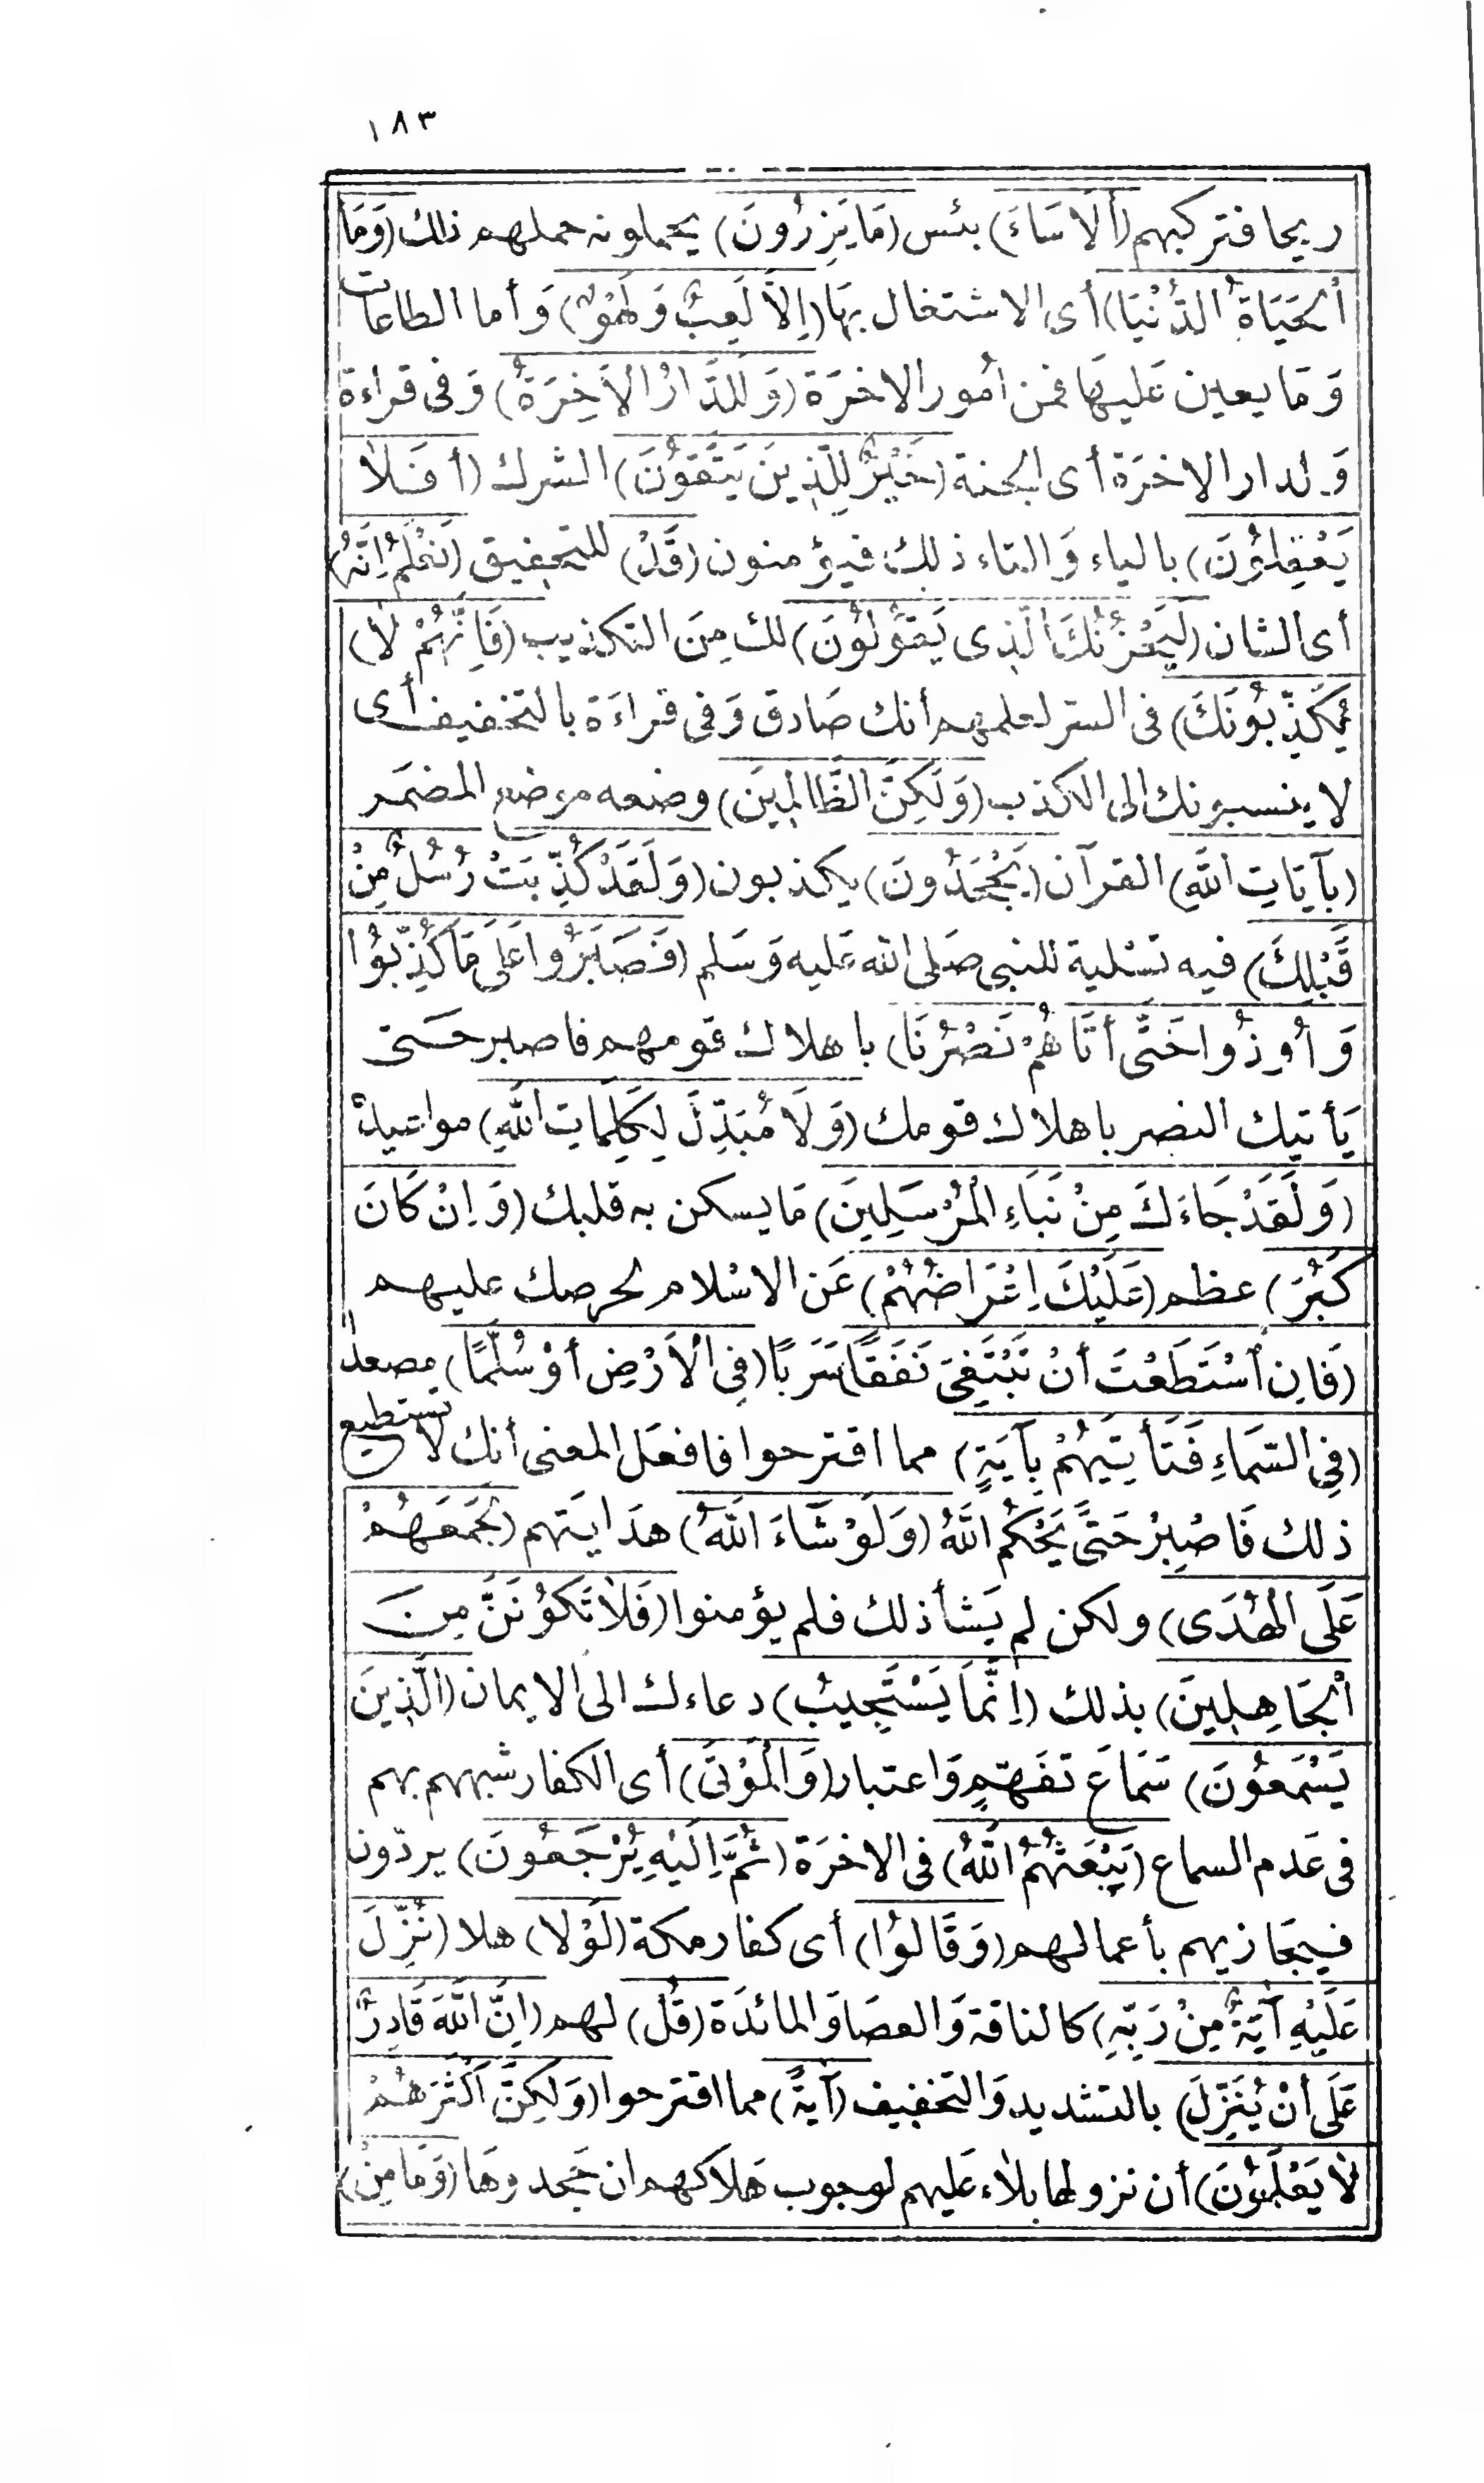 ١٨٣
ريحا فتركبهم (أَلَا سَاءَ) بئس (مَا يَزِرُونَ) يحملونه حملهم ذلك (وَمَا
اُلْحَيَاةُ الدُّنْيَا) أى الاشتغال بهَا (اِلَّا لَعِبٌ وَلَهْوٌ) وَأما الطاعات
وَمَا يعين عَليهَا فمن أمور الاخرَة (وَلَلدَّارُ الْآخِرَةُ) وَفى قراءة
وَلدار الاخرَة أى الجنة (خَيْرٌ لِلَّذِينَ يَتَّقُونَ) الشرك (أفَلَا
يَعْقِلُونَ) بالياء وَالتاء ذلك فيؤمنون (قَدْ) للتحقيق (نَعْلَمُ اِنَّهُ)
أى الشان (لَيَحْزُنُكَ الَّذِى يَقُولُونَ) لك مِنَ التكذيب (فَاِنَّهُمْ لَا)
يُكَذِّبُونَكَ) فى السر لعلمهم أنك صَادق وَفى قراءَة بالتخفيف أى
لا ينسبونك الى الكذب (وَلَكِنَّ الظَّالِمِينَ) وضعه موضع المضمَر
(بِآيَاتِ اللَّهِ) القرآن (يَجْحَدُونَ) يكذبون (وَلَقَدْ كُذِّبَتْ رُسُلٌ مِنْ
قَبْلِكَ) فيه تسْلية للنبى صَلى الله عَليه وَسَلم (فَصَبَرُوا عَلَى مَا كُذِّبُوا
وَأُوذُوا حَتَّى أتَاهُمْ نَصْرُنَا) باهلاك قومهم فاصبر حَتى
يَأتيك النصر باهلاك قومك (وَلَا مُبَدِّلَ لِكَلِمَاتِ اللَّهِ) مواعيده
(وَلَقَدْ جَاءَكَ مِنْ نَبَاءِ الْمُرْسَلِينَ) مَا يسكن به قلبك (وَاِنْ كَانَ
كَبُرَ) عظم (عَلَيْكَ اِعْرَاضُهُمْ) عَن الاسْلام لحرصك عليهم
(فَاِنِ اسْتَطَعْتَ أنْ تَبْتَغِىَ نَفَقًا) سَرَبًا (فِى الْأَرْضِ أوْ سُلَّمًا) مصعدا
(فِى السَّمَاءِ فَتَأْتِيَهُمْ بِآيَةٍ) مما اقترحوا فافعَل المعنى أنك لا تستطيع
ذلك فَاصْبِرْ حَتَّى يَحْكُمَ اللَّهُ (وَلَوْ شَاءَ اللَّهُ) هدَايَتهم (لَجَمَعَهُمْ
عَلَى الْهُدَى) ولكن لم يَشأ ذلك فلم يؤمنوا (فَلَا تَكُونَنَّ مِنَ
اُلْجَاهِلِينَ) بذلك (اِنَّمَا يَسْتَجِيبُ) دعاءك الى الايمان (الَّذِينَ
يَسْمَعُونَ) سَمَاعَ تَفَهُّمٍ وَاعتبار (وَالْمَوْتَى) أى الكفار شبههم بهم
فى عَدم السماع (يَبْعَثُهُمُ اللَّهُ) فى الاخرَة (ثُمَّ اِلَيْهِ يُرْجَعُونَ) يردّون
فيجَازيهم بأعمالهم (وَقَالُوا) أى كفار مكة (لَوْلَا) هلا (نُزِّلَ
عَلَيْهِ آيَةٌ مِنْ رَبِّهِ) كالناقة وَالعصَا وَالمائدَة (قُلْ) لهم (اِنَّ اللَّهَ قَادِرٌ
عَلَى أنْ يُنَزِّلَ) بالتشديد وَالتخفيف (آيَةً) مما اقترحوا (وَلَكِنَّ أكْثَرَهُمْ
لَا يَعْلَمُونَ) أن نزولها بلاء عَليهم لوجوب هَلاكهم ان جَحدوهَا (وَمَا مِنْ)